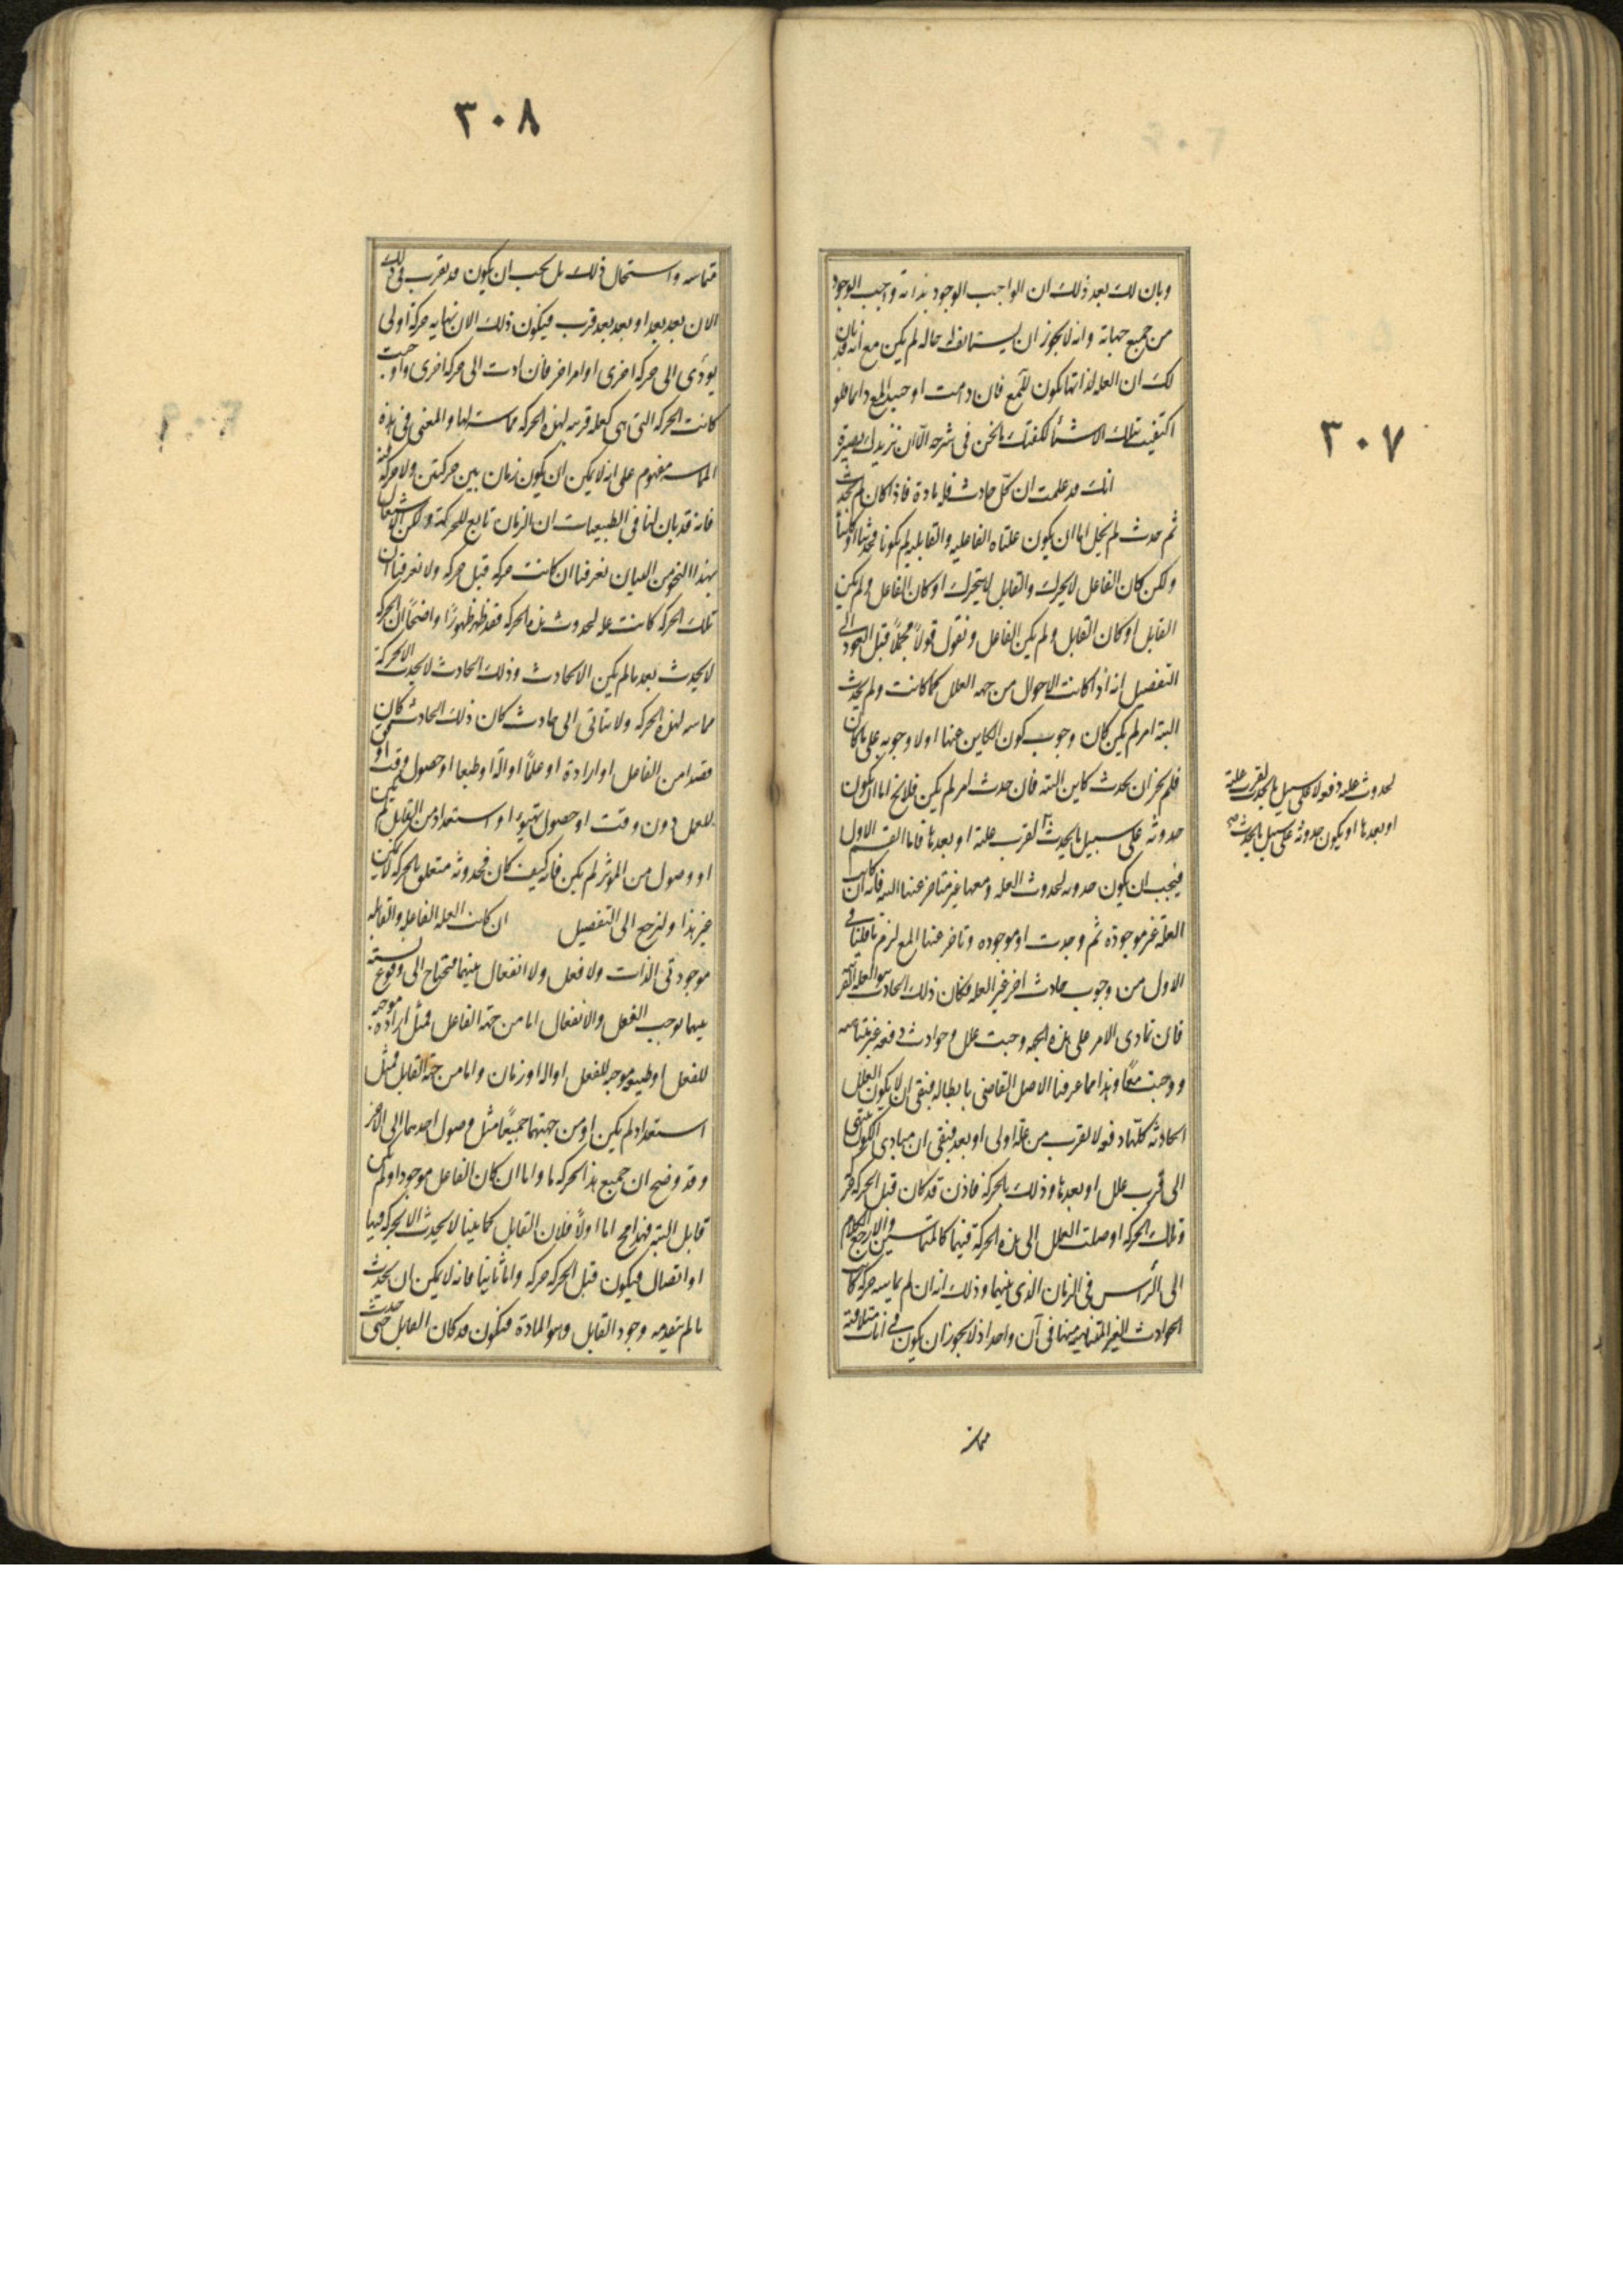 ٣٠٧
وبان لك بعد ذلك ان الواجب الوجود بذاته واجب الوجود
من جميع جهاته وانه لا يجوز ان يستانف له حاله لم يكن مع انه قد بان
لك ان العله لذاتها يكون للمع فان دامت اوجب المع دايما فلو
اكتفيت بتلك الاشياء لكفتك ما نحن فى شرحه الا ان نزيدك بصيرة
انك قد علمت ان كل حادث فله مادة فاذا كان لم يحدث
ثم حدث لم يخل اما ان يكون علتاه الفاعليه والقابليه لم يكونا فحدثتا او كانتا
ولكن كان الفاعل لا يحرك والقابل لا يتحرك او كان الفاعل ولم يكن
القابل او كان القابل ولم يكن الفاعل ونقول قولا مجملا قبل العود الى
التفصيل انه اذا كانت الاحوال من جهه العلل كما كانت ولم يحدث
البته امر لم يكن كان وجوب كون الكاين عنها اولا وجوبه على ما كان
فلم يجز ان يحدث كاين البته فان حدث امر لم يكن فلا يخ اما ان يكون
حدوثه على سبيل ما يحدث لقرب علته او بعدها فاما القسم الاول
لحدوث علته دفعه لا على سبيل ما يحدث لقرب علته
او بعدها او يكون حدوثه على سبيل ما يحدث صح
فيجب ان يكون حدوثه لحدوث العله ومعها غير متاخر عنها البته فانه ان كانت
العلة غير موجودة ثم وجدت او موجوده وتاخر عنها المع لزم ما قلنا فى
الاول من وجوب حادث اخر غير العله فكان ذلك الحادث هو العله القريبه
فان تمادى الامر على هذه الجهه وجبت علل وحوادث دفعه غير متناهيه
ووجبت معا وهذا مما عرفنا الاصل القاضى بابطاله فبقى ان لا يكون العلل
الحادثه كلها دفعه لا لقرب من علة اولى او بعد فبقى ان مبادى الكون ينتهى
الى قرب علل او بعدها وذلك بالحركة فاذن قد كان قبل الحركه حركه
وتلك الحركه اوصلت العلل الى هذه الحركة فهما كالمتماستين والا رجع الكلام
الى الرأس فى الزمان الذى بينهما وذلك انه ان لم يماسه حركه كانت
الحوادث الغير المتناهيه منها فى آن واحد اذ لا يجوز ان يكون فى انات متلاقية
مماسه
٣٠٨
متماسه واستحال ذلك بل يجب ان يكون قد قرب فى ذلك
الان بعد بعد او بعد بعد قرب فيكون ذلك الان نهايه حركة اولى
يؤدى الى حركه اخرى او امر اخر فان ادت الى حركه اخرى واوجبت
كانت الحركه التى هى كعله قريبه لهذه الحركه مماسه لها والمعنى فى هذه
المماسه مفهوم على انه لا يمكن ان يكون زمان بين حركتين ولا حركه فيه
فانه قد بان لنا فى الطبيعيات ان الزمان تابع للحركة ولكن الاشتغال
بهذا النحو من البيان يعرفنا ان كانت حركه قبل حركه ولا يعرفنا ان
تلك الحركه كانت عله لحدوث هذه الحركه فقد ظهر ظهورًا واضحًا ان الحركه
لا يحدث بعد ما لم يكن الا لحادث وذلك الحادث لا يحدث الا بحركة
مماسه لهذه الحركه ولا يتاتى اى حادث كان ذلك الحادث كان
قصدا من الفاعل او ارادة او علمًا او آلة او طبعا او حصول وقت اوفق
للعمل دون وقت او حصول تهيؤ او استعداد من القابل لم يكن
او وصول من المؤثر لم يكن فانه كيف كان فحدوثه متعلق بالحركه لا يمكن
غير هذا ولنرجع الى التفصيل ان كانت العله الفاعليه والقابله
موجودتى الذات ولا فعل ولا انفعال بينهما فيحتاج الى وقوع نسبته
بينهما يوجب الفعل والانفعال اما من جهة الفاعل فمثل ارادة موجبه
للفعل او طبيعه موجبه للفعل او اله او زمان واما من جهة القابل فمثل
استعداد لم يكن او من جهتهما جميعًا مثل وصول احدهما الى الاخر
وقد وضح ان جميع هذا بحركه ما واما ان كان الفاعل موجودا ولم يكن
قابل البته فهذا مح اما اولًا فلان القابل كما بينا لا يحدث الا بحركه فيها
او اتصال فيكون قبل الحركه حركه واما ثانيا فانه لا يمكن ان يحدث
ما لم يتقدمه وجود القابل وهو المادة فيكون قد كان القابل حتى حدث